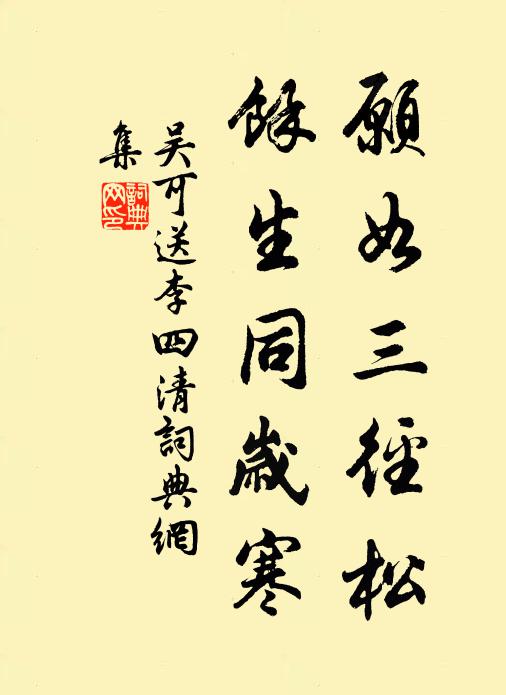 願如三徑松
餘生同歲寒
吴可送李四清詞典網
集
詞典
网印